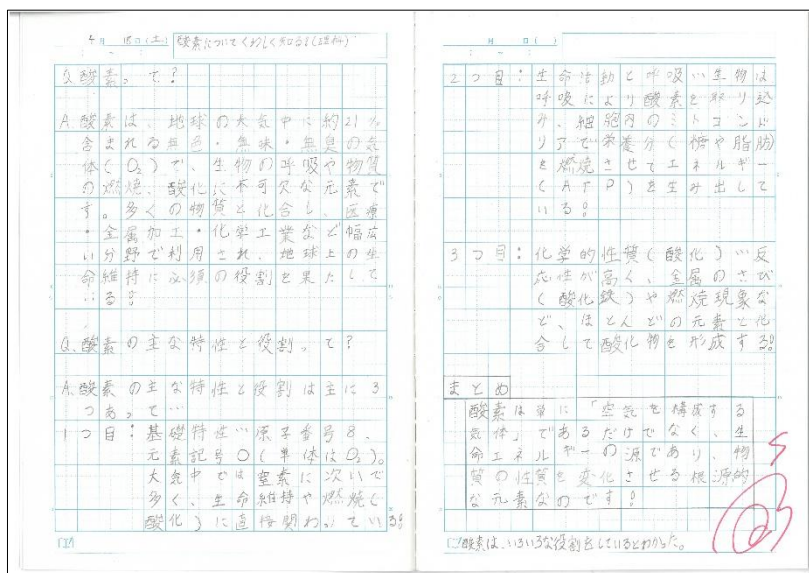 4月 18日(土) 酸素についてくわしく知る!(理科)
Q.酸素。って?
A.酸素は、地球の大気中に約21%
含まれる無色・無味・無臭の気
体(O₂)で、生物の呼吸や物質
の燃焼、酸化に不可欠な元素で
す。多くの物質と化合し、医療
・金属加工・化学工業など幅広
い分野で利用され、地球上の生
命維持に必須の役割を果たして
いる。
Q.酸素の主な特性と役割。って?
A.酸素の主な特性と役割は主に3
つあって…
1つ目:基礎特性…原子番号8、
元素記号O(単体はO₂)。
大気中では窒素に次いで
多く、生命維持や燃焼(
酸化)に直接関わっている。
月 日( )
2つ目:生命活動と呼吸…生物は
呼吸により酸素を取り込
み、細胞内のミトコンド
リアで栄養分(糖や脂肪)
を燃焼させてエネルギー
(ATP)を生み出して
いる。
3つ目:化学的性質(酸化)…反
応性が高く、金属のさび
(酸化鉄)や燃焼現象な
ど、ほとんどの元素と化
合して酸化物を形成する。
まとめ
酸素は単に「空気を構成する
気体」であるだけでなく、生
命エネルギーの源であり、物
質の性質を変化させる根源的
な元素なのです。
酸素は、いろいろな役割をしているとわかった。